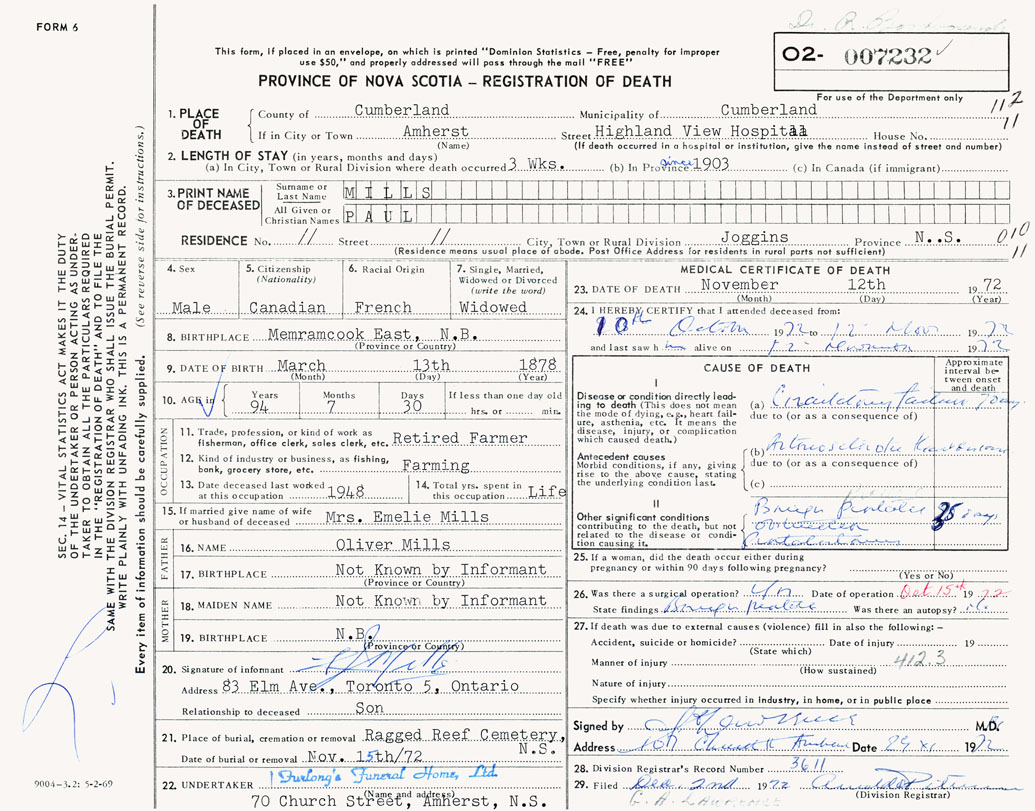 FORM 6
This form, if placed in an envelope, on which is printed "Dominion Statistics – Free, penalty for improper
use $50," and properly addressed will pass through the mail "FREE"
PROVINCE OF NOVA SCOTIA – REGISTRATION OF DEATH
O2- 007232
For use of the Department only
112
11
1. PLACE OF DEATH
County of Cumberland Municipality of Cumberland
If in City or Town Amherst Street Highland View Hospital House No.
(Name) (If death occurred in a hospital or institution, give the name instead of street and number)
2. LENGTH OF STAY (in years, months and days)
(a) In City, Town or Rural Division where death occurred 3 Wks. (b) In Province since 1903 (c) In Canada (if immigrant)
3. PRINT NAME OF DECEASED
Surname or Last Name MILLS
All Given or Christian Names PAUL
RESIDENCE No. // Street // City, Town or Rural Division Joggins Province N..S.
(Residence means usual place of abode. Post Office Address for residents in rural parts not sufficient)
010
11
4. Sex
Male
5. Citizenship
(Nationality)
Canadian
6. Racial Origin
French
7. Single, Married,
Widowed or Divorced
(write the word)
Widowed
8. BIRTHPLACE Memramcook East, N.B.
(Province or Country)
9. DATE OF BIRTH March 13th 1878
(Month) (Day) (Year)
10. AGE in Years 94 Months 7 Days 30 If less than one day old
hrs. or min.
OCCUPATION
11. Trade, profession, or kind of work as
fisherman, office clerk, sales clerk, etc. Retired Farmer
12. Kind of industry or business, as fishing,
bank, grocery store, etc. Farming
13. Date deceased last worked
at this occupation 1948
14. Total yrs. spent in
this occupation Life
15. If married give name of wife
or husband of deceased Mrs. Emelie Mills
FATHER
16. NAME Oliver Mills
17. BIRTHPLACE Not Known by Informant
(Province or Country)
MOTHER
18. MAIDEN NAME Not Known by Informant
19. BIRTHPLACE N.B.
(Province or Country)
20. Signature of informant Mills
Address 83 Elm Ave., Toronto 5, Ontario
Relationship to deceased Son
21. Place of burial, cremation or removal Ragged Reef Cemetery,
N.S.
Date of burial or removal Nov. 15th/72
22. UNDERTAKER Furlong's Funeral Home, Ltd.
(Name and address)
70 Church Street, Amherst, N.S.
MEDICAL CERTIFICATE OF DEATH
23. DATE OF DEATH November 12th 1972
(Month) (Day) (Year)
24. I HEREBY CERTIFY that I attended deceased from:
10th 1972 to 12 Nov 1972
and last saw him alive on 12 1972
CAUSE OF DEATH
Approximate
interval be-
tween onset
and death
I
Disease or condition directly lead-
ing to death (This does not mean
the mode of dying, e.g., heart fail-
ure, asthenia, etc. It means the
disease, injury, or complication
which caused death.)
(a)
due to (or as a consequence of)
Antecedent causes
Morbid conditions, if any, giving
rise to the above cause, stating
the underlying condition last.
(b)
due to (or as a consequence of)
(c)
II
Other significant conditions
contributing to the death, but not
related to the disease or condi-
tion causing it.
Benign prostatic
days
25. If a woman, did the death occur either during
pregnancy or within 90 days following pregnancy?
(Yes or No)
26. Was there a surgical operation? Yes Date of operation Oct 15th 1972
State findings Benign prostatic Was there an autopsy?
27. If death was due to external causes (violence) fill in also the following: –
Accident, suicide or homicide? Date of injury 19
(State which)
Manner of injury 412.3
(How sustained)
Nature of injury
Specify whether injury occurred in industry, in home, or in public place
Signed by M.D.
Address 107 Church St Amherst Date 29 XI 1972
28. Division Registrar's Record Number 3611
29. Filed Dec. 2nd 1972
(Division Registrar)
G. H. LAWRENCE
SEC. 14 – VITAL STATISTICS ACT MAKES IT THE DUTY
OF THE UNDERTAKER OR PERSON ACTING AS UNDER-
TAKER TO OBTAIN ALL THE PARTICULARS REQUIRED
IN THE "REGISTRATION OF DEATH" AND TO FILE THE
SAME WITH THE DIVISION REGISTRAR WHO SHALL ISSUE THE BURIAL PERMIT.
WRITE PLAINLY WITH UNFADING INK. THIS IS A PERMANENT RECORD.
Every item of information should be carefully supplied. (See reverse side for instructions.)
9004-3.2: 5-2-69